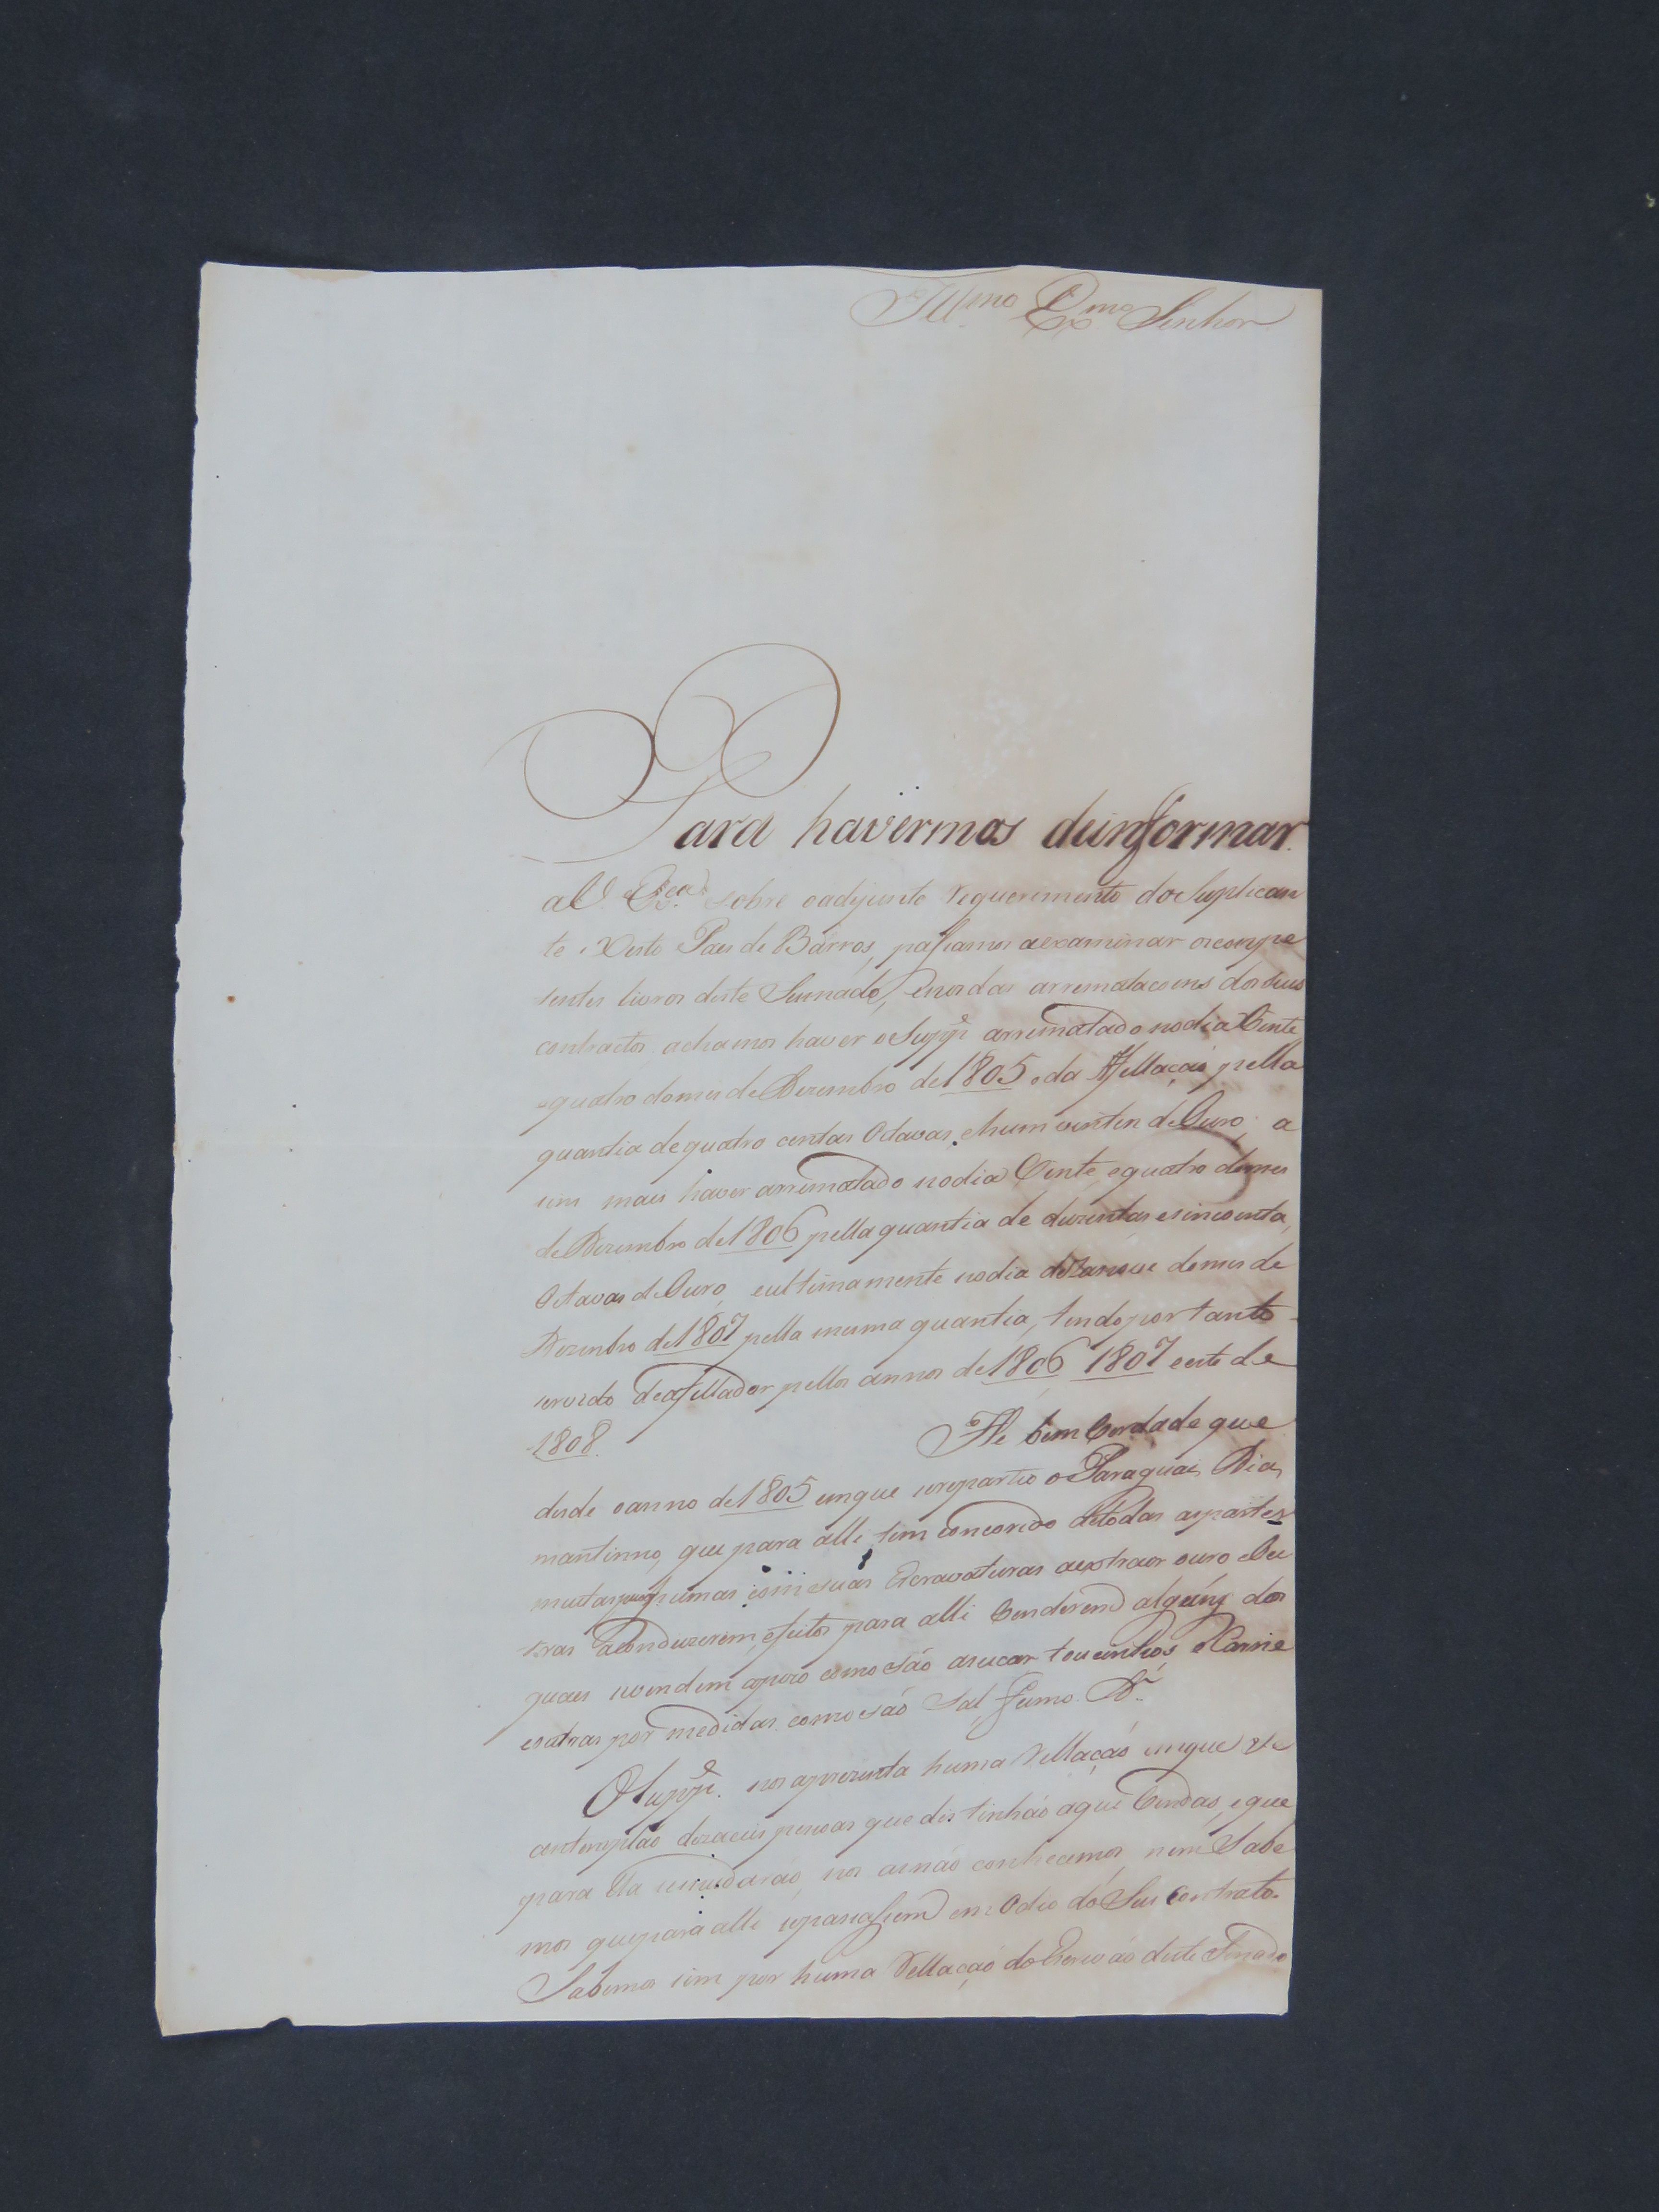 Ill.mo Ex.mo Senhor
Para havermos deinformar
a V. Ex.ca sobre oadjunto requerimento do Suplican
te Xisto Paes de Barros, pasamos aexaminar oscompe
tentes livros deste Sennado, enosdas arremataçoens dos seus
contractos achamos haver o Supp.e arrematado nodia Vinte
equatro domes de Dezembro de 1805 o da Affellaçaó pella
quantia dequatro centas Octavas, ehum vintem de Ouro; a
sim mais haver arrematado nodia Vinte equatro domes
de Dezembro de 1806 pella quantia de duzentas esincoenta
Octavas de Ouro, eultimamente nodia dezanove domes de
Dezembro de 1807 pella mesma quantia, tendo por tanto
servido deafellador pellos annos de 1806 1807 eeste de
1808. He bem Verdade que
desde oanno de 1805 emque serepartio o Paraguai Dia
mantinno, que para alli tem concorrido detodas aspartes
muitas humas com suas Escravaturas aextraor ouro eou
tras aconduzerem efeitos para alli Venderem alguns dos
quais sevendem apezo como são asucar toucinhos, eCarne
eoutras por medidas como são Sal, fumo &.a
O Supp.e nos aprezenta huma Rellaçaó emque se
contemplão dezaceis pesoas que dis tinháo aqui Vendas, eque
para lla semudaraó, nos asnaó conhecemos, nem Sabe
mos quepara alli sepasasem em Odio do Seu Contrato.
Sabemos sim por huma Rellaçaó do Escrivaó deste Senado